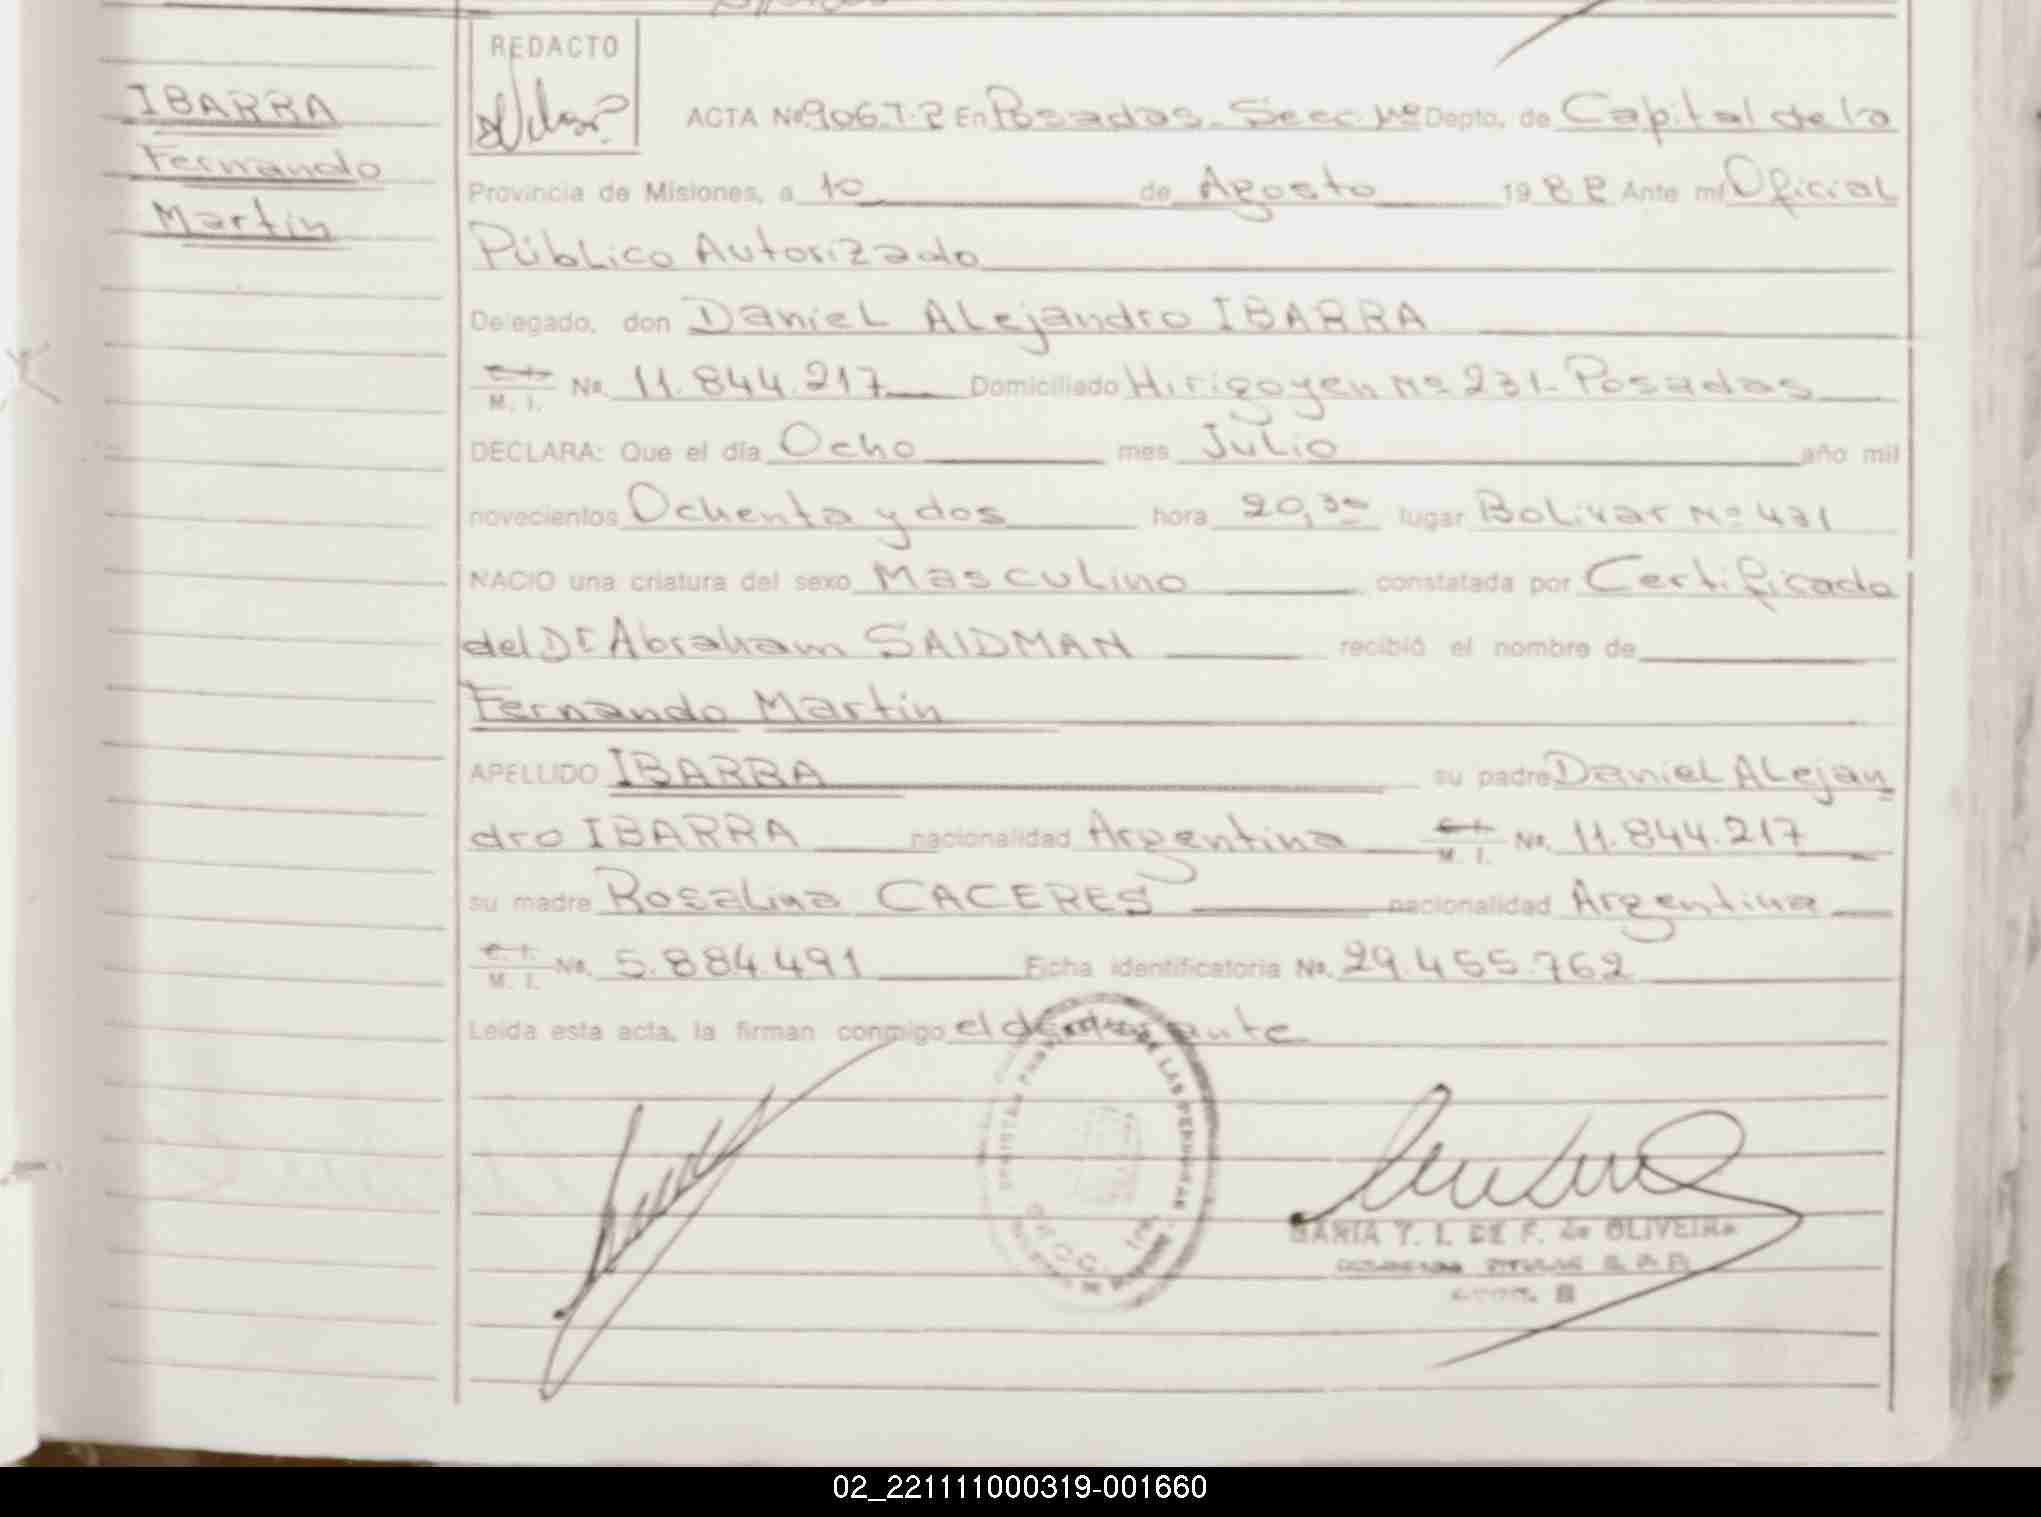 IBARRA
Fernando
Martín
REDACTO
ACTA No. 906.T.2 En Posadas. Secc. Depto. de Capital de la
Provincia de Misiones, a 10 de Agosto 1982 Ante mí Oficial
Público Autorizado
Delegado, don Daniel Alejandro IBARRA
M. I. No. 11.844.217 Domiciliado Hirigoyen Nº 231-Posadas
DECLARA: Que el día Ocho mes Julio año mil
novecientos Ochenta y dos hora 20,30 lugar Bolivar Nº 431
NACIO una criatura del sexo Masculino constatada por Certificado
del Dr Abraham SAIDMAN recibió el nombre de
Fernando Martín
APELLIDO IBARRA su padre Daniel Alejan
dro IBARRA nacionalidad Argentina M. I. No. 11.844.217
su madre Rosalina CACERES nacionalidad Argentina
M. I. No. 5.884.491 Ficha identificatoria No. 29.455.762
Leída esta acta, la firman conmigo el
DE LAS PERSONAS
MARIA Y. I. DE F. de OLIVEIRA
02_221111000319-001660